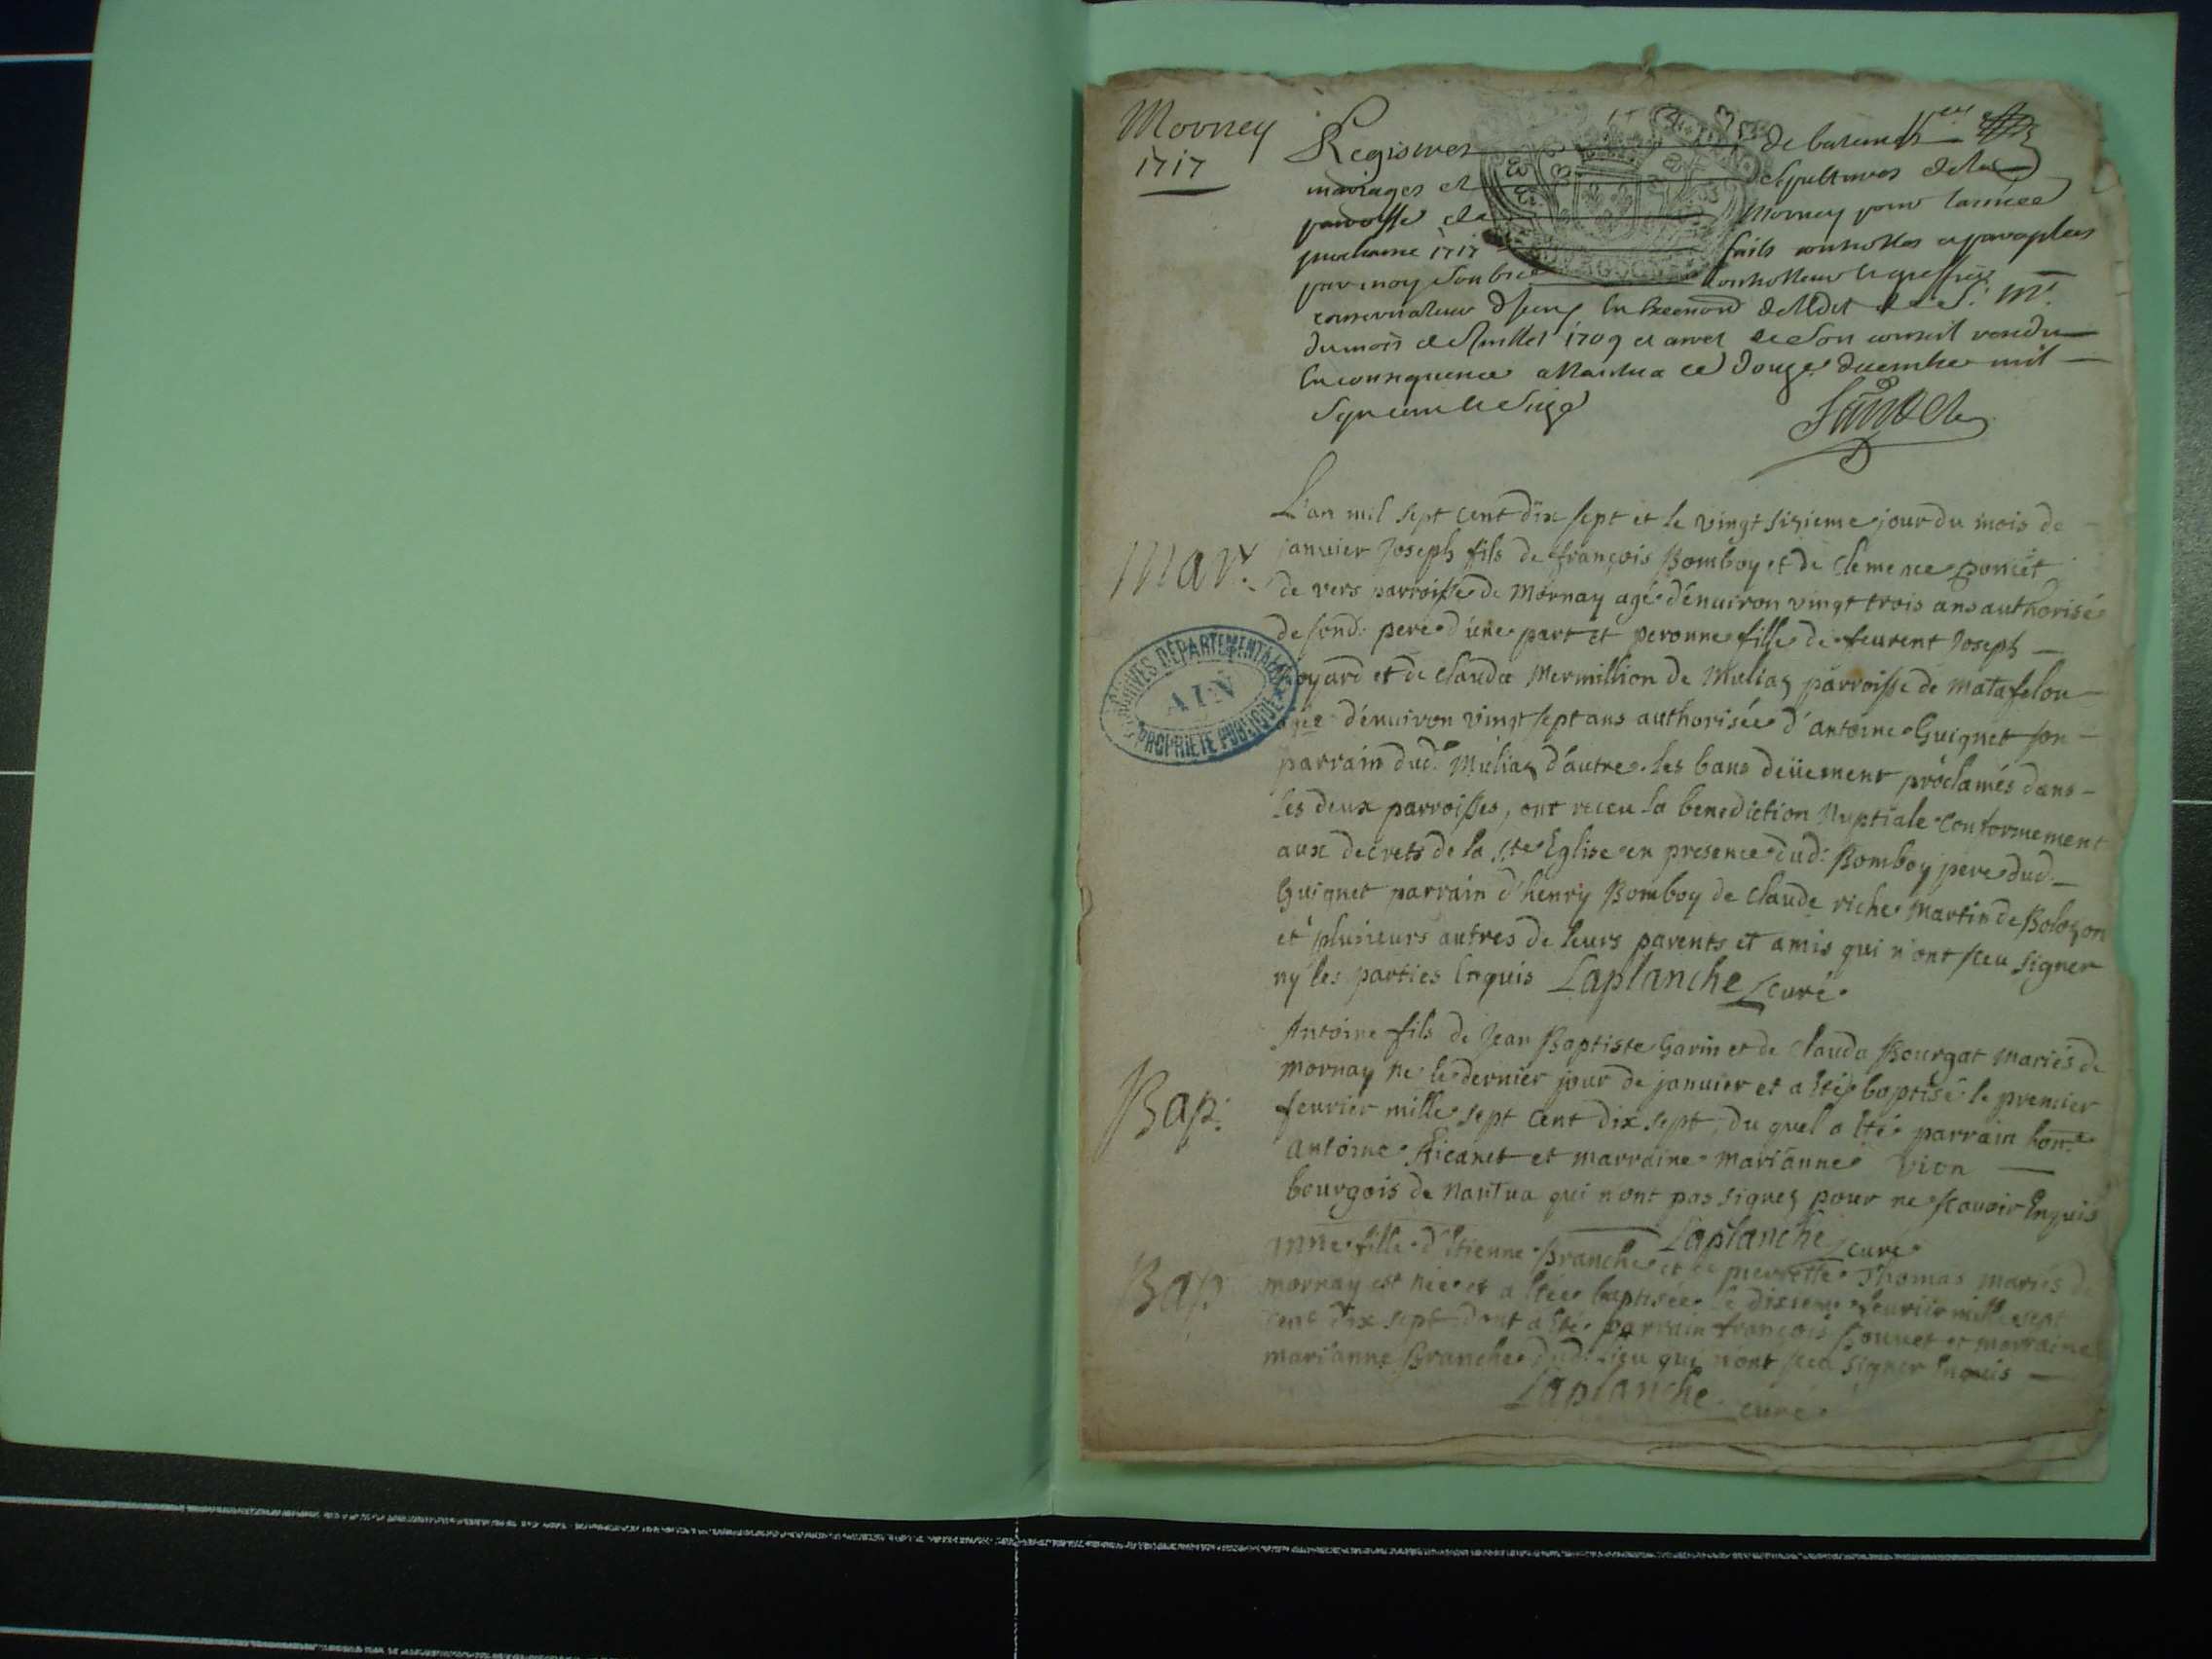 Mornay
1717
Registres de batemes
mariages et sepultures de la
parroisse de Mornay pour lannée
prochaine 1717 faits controlles et paraphes
par moy soubsé controlleur le greffier
conservateur
du mois de Juillet 1709 et arrest de son conseil rendu
En consequence a Nantua ce douze decembre mil
sept cent et seize
Mar.
L'an mil sept cent dix sept et le vingt sizieme jour du mois de
janvier Joseph fils de françois Bomboy et de Clemence poncet
de vers parroisse de Mornay agé d'enuiron vingt trois ans authorisé
de sond. pere d'une part et peronne fille de feu rent Joseph
oyard et de Clauda Mermillion de Mulias parroisse de Matafelon
agée d'enuiron vingt sept ans authorisée d'antoine Guignet son
parrain dud. Mulias d'autre. les bans deüement proclamés dans
les deux parroisses, ont receu la benediction Nuptiale Conformement
aux decrets de la ste Eglise en presence dud. Bomboy pere dud
Guignet parrain d'henry Bomboy de Claude riche Martin de Bolozon
et plusieurs autres de leurs parents et amis qui n'ont sceu signer
ny les parties Enquis Laplanche curé
ARCHIVES DÉPARTEMENTALES
AIN
PROPRIÉTÉ PUBLIQUE
Bap.
Antoine fils de Jean Baptiste Garin et de Clauda Bourgat mariés de
mornay ne le dernier jour de janvier et a été baptisé le premier
feurier mille sept cent dix sept, du quel a été parrain hon.
antoine Ricanet et marraine marianne vion
bourgois de Nantua qui n'ont pas signez pour ne scavoir Enquis
Laplanche curé
Bap
fille d'Etienne Branche et de pierrette Thomas mariés de
mornay est née et a étée baptisée le dixieme feurier mille sept
cent dix sept dont a été parrain françois et marraine
marianne Branche dud. Lieu qui n'ont sceu signer Enquis
Laplanche curé